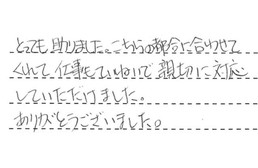 とっても助りました。こちらの都合に合わせて
くれて仕事もていねいで親切に対応
していただけました。
ありがとうございました。